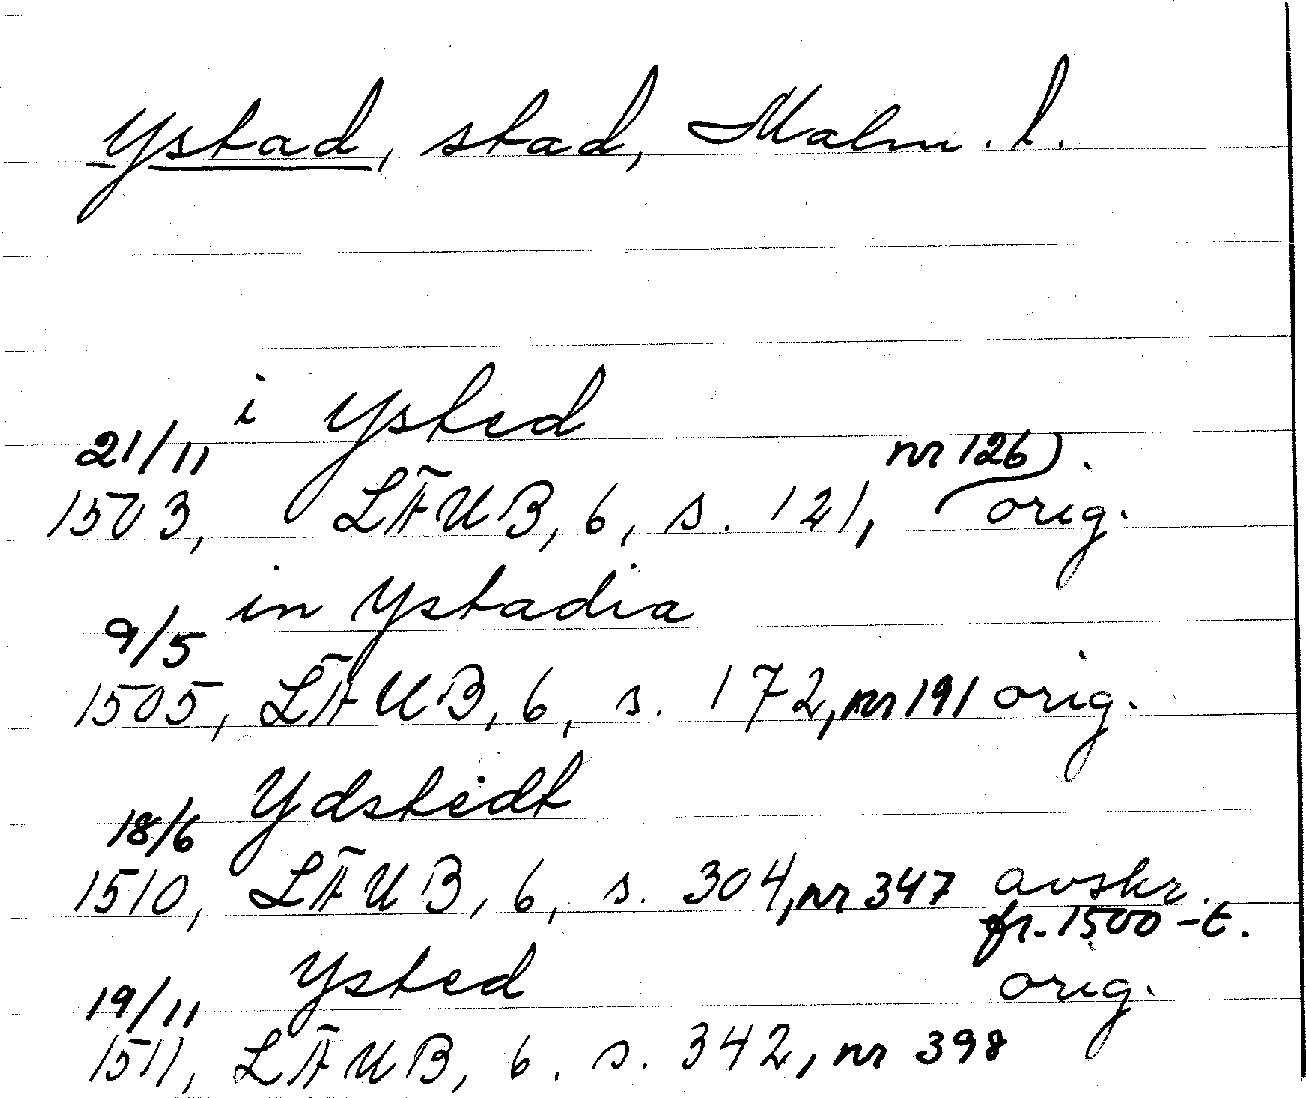 Ystad, stad, Malm. l.
i Ysted
21/11
1503, LÄUB, 6, s. 121, nr 126). orig.
in Ystadia
9/5
1505, LÄUB, 6, s. 172, nr 191 orig.
Ydstedt
18/6
1510, LÄUB, 6, s. 304, nr 347 avskr.
fr. 1500-t.
Ysted orig.
19/11
1511, LÄUB, 6. s. 342, nr 398